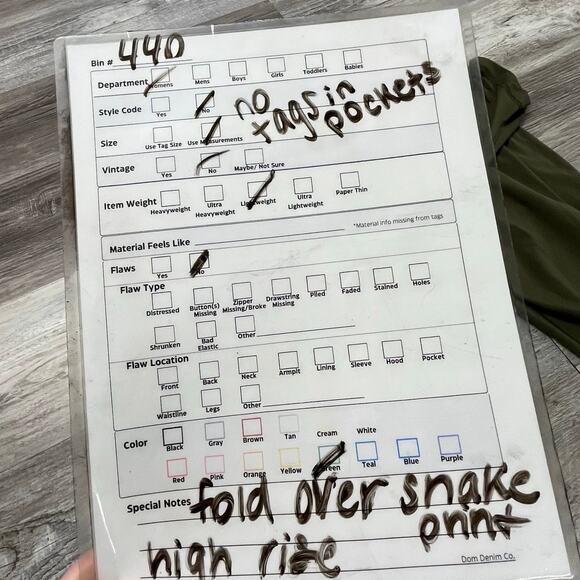 Bin # 440
Department Womens Mens Boys Girls Toddlers Babies
Style Code Yes No no tags in pockets
Size Use Tag Size Use Measurements
Vintage Yes No Maybe/ Not Sure
Item Weight Heavyweight Ultra Heavyweight Lightweight Ultra Lightweight Paper Thin
Material Feels Like *Material info missing from tags
Flaws Yes No
Flaw Type
Distressed Button(s) Missing Zipper Missing/Broke Drawstring Missing Piled Faded Stained Holes
Shrunken Bad Elastic Other
Flaw Location
Front Back Neck Armpit Lining Sleeve Hood Pocket
Waistline Legs Other
Color Black Gray Brown Tan Cream White
Red Pink Orange Yellow Green Teal Blue Purple
Special Notes fold over snake
high rise
Dom Denim Co.